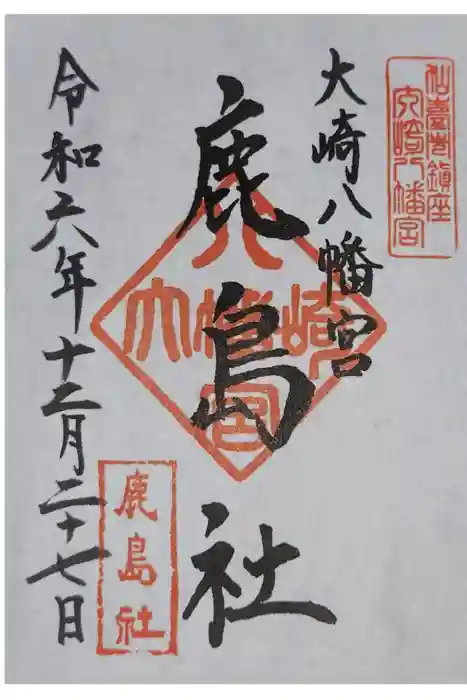 仙臺市鎮座
大崎八幡宮
大崎八幡宮
鹿島社
八
大幡崎
宮
鹿島社
令和六年十二月二十七日